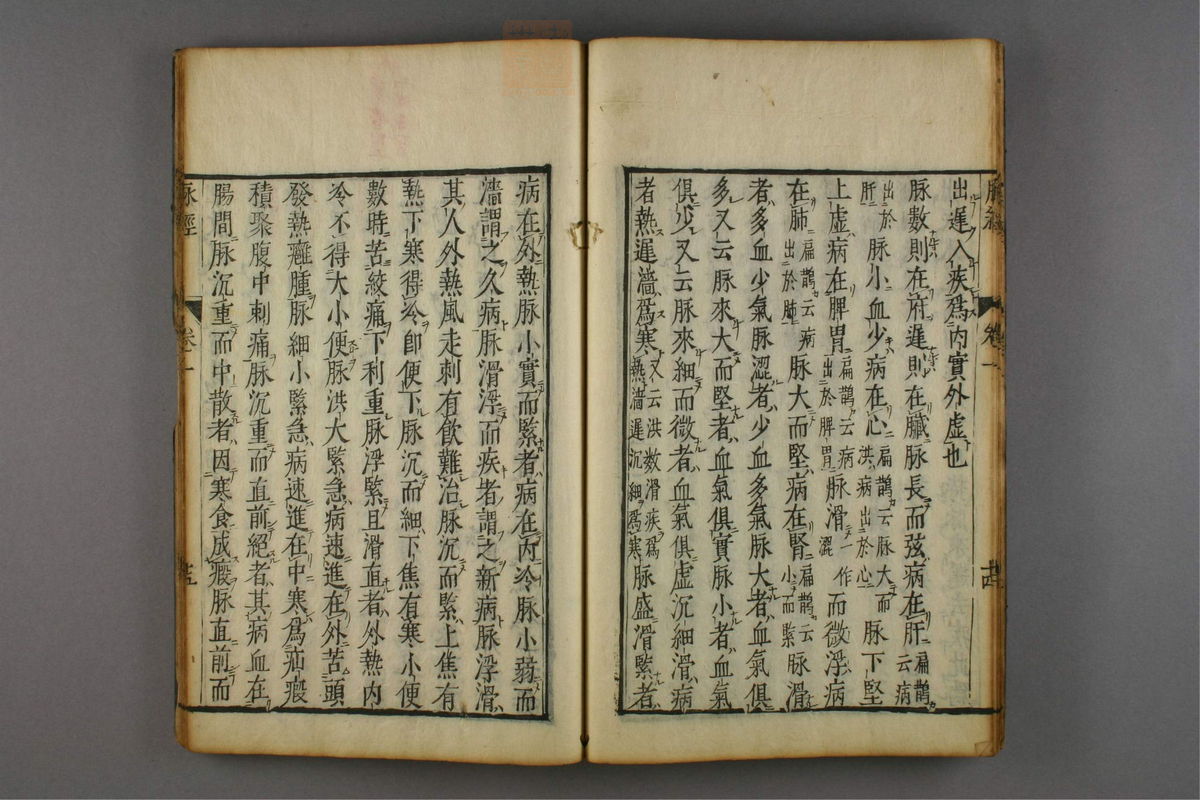 出遲入疾爲內實外虛也
脉數則在府遲則在臟脉長而弦病在肝扁鵲云病
出於肝脉小血少病在心扁鵲云脉大而洪病出於心脉下堅
上虛病在脾胃扁鵲云病出於脾胃脉滑一作澀而微浮病
在肺扁鵲云病出於肺脉大而堅病在腎扁鵲云小而緊脉滑
者多血少氣脉澀者少血多氣脉大者血氣俱
多又云脉來大而堅者血氣俱實脉小者血氣
俱少又云脉來細而微者血氣俱虛沉細滑病
者熱遲濇爲寒又云洪數滑疾爲熱濇遲沉細爲寒脉盛滑緊者
病在外熱脉小實而緊者病在內冷脉小弱而
濇謂之久病脉滑浮而疾者謂之新病脉浮滑
其人外熱風走刺有飮難治脉沉而緊上焦有
熱下寒得冷卽便下脉沉而細下焦有寒小便
數時苦絞痛下利重脉浮緊且滑直者外熱內
冷不得大小便脉洪大緊急病速進在外苦頭
發熱癰腫脉細小緊急病速進在中寒爲疝瘕
積聚腹中刺痛脉沉重而直前絕者其病血在
腸間脉沉重而中散者因寒食成瘕脉直前而
脉經
卷一